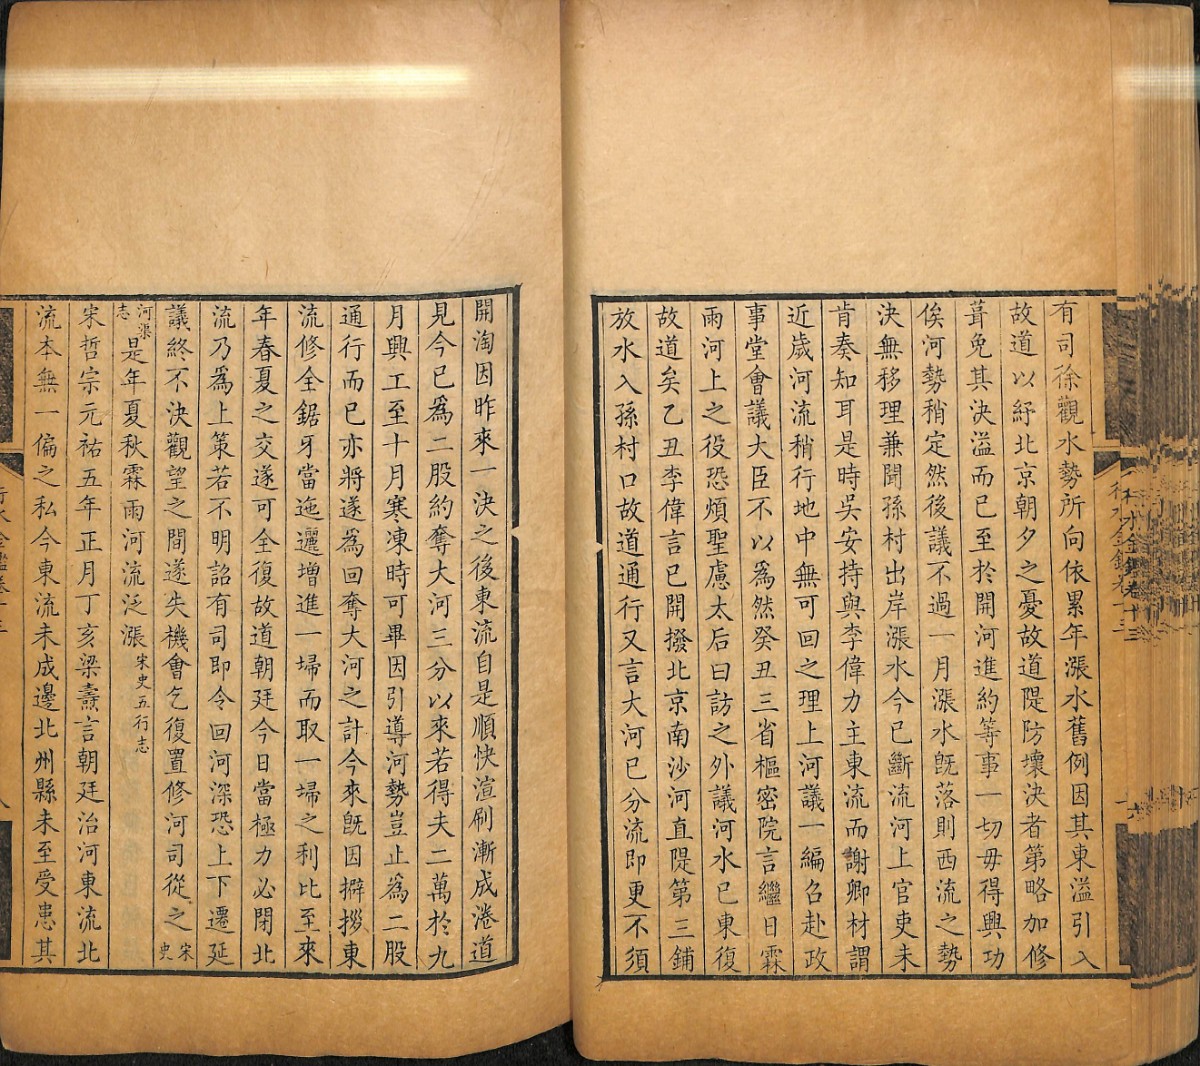 有司徐觀水勢所向依累年漲水舊例因其東溢引入
故道以紓北京朝夕之憂故道隄防壞決者第略加修
葺免其決溢而已至於開河進約等事一切毋得興功
俟河勢稍定然後議不過一月漲水旣落則西流之勢
決無移理兼聞孫村出岸漲水今已斷流河上官吏未
肯奏知耳是時吳安持與李偉力主東流而謝卿材謂
近歲河流稍行地中無可回之理上河議一編召赴政
事堂會議大臣不以爲然癸丑三省樞密院言繼日霖
雨河上之役恐煩聖慮太后曰訪之外議河水已東復
故道矣乙丑李偉言已開撥北京南沙河直隄第三鋪
放水入孫村口故道通行又言大河已分流即更不須
開淘因昨來一決之後東流自是順快渲刷漸成港道
見今已爲二股約奪大河三分以來若得夫二萬於九
月興工至十月寒凍時可畢因引導河勢豈止爲二股
通行而已亦將遂爲回奪大河之計今來旣因擗拶東
流修全鋸牙當迤邐增進一埽而取一埽之利比至來
年春夏之交遂可全復故道朝廷今日當極力必閉北
流乃爲上策若不明詔有司即令回河深恐上下遷延
議終不決觀望之間遂失機會乞復置修河司從之宋史
河渠志是年夏秋霖雨河流泛漲宋史五行志
宋哲宗元祐五年正月丁亥梁燾言朝廷治河東流北
流本無一偏之私今東流未成邊北州縣未至受患其
行水金鑑卷十三